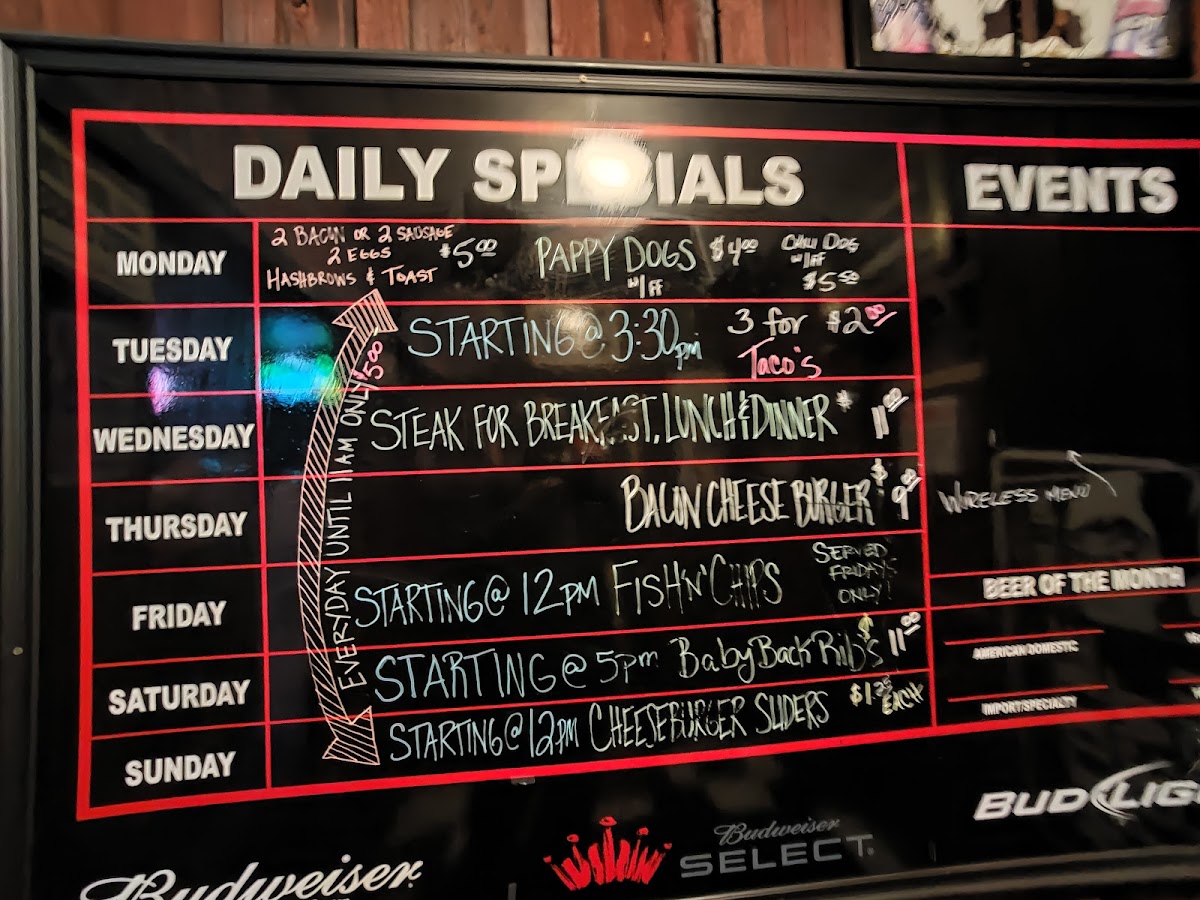 DAILY SPECIALS
EVENTS
MONDAY
2 BACON OR 2 SAUSAGE
2 EGGS
HASHBROWS & TOAST
$5.00
PAPPY DOGS $4.00
W/FF
CHILI DOG
W/FF
$5.50
TUESDAY
STARTING @ 3:30pm
3 for $2.00
Taco's
EVERYDAY UNTIL 11AM ONLY 5.00
WEDNESDAY
STEAK FOR BREAKFAST, LUNCH & DINNER
THURSDAY
BACON CHEESE BURGER
WIRELESS MENU
FRIDAY
STARTING @ 12PM FISH N' CHIPS
SERVED
FRIDAYS
ONLY
BEER OF THE MONTH
SATURDAY
STARTING @ 5pm Baby Back Rib's $11.00
AMERICAN DOMESTIC
SUNDAY
STARTING @ 12PM CHEESEBURGER SLIDERS $1.25 EACH
IMPORT/SPECIALTY
BUD LIG
Budweiser
SELECT
Budweiser